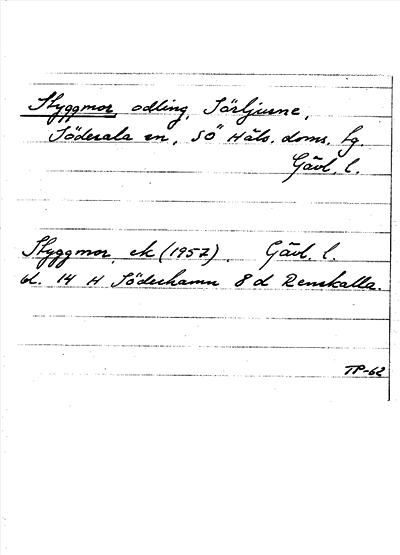 Styggmor, odling, Sörljusne,
Söderala sn, SÖ Häls. doms. fg.
Gävl. l.
Styggmor, ek (1957). Gävl. l.
bl. 14 H Söderhamn 8 d Renskalla.
TP-62